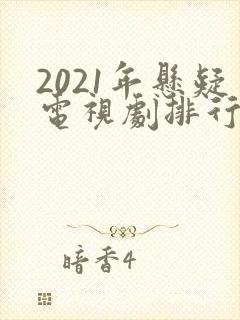 2021年懸疑
電視劇排行
暗香4